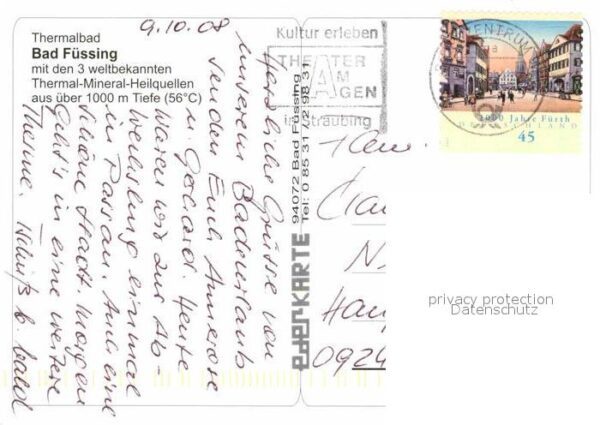 9.10.08
Thermalbad
Bad Füssing
mit den 3 weltbekannten
Thermal-Mineral-Heilquellen
aus über 1000 m Tiefe (56°C)
Herzliche Grüsse von
unserem Badeurlaub
senden Euch Annerose
u. Gerhard. Heute
waren wir zur Ab
wechslung einmal
in Passau. Auch eine
schöne Stadt. Morgen
geht's in eine weitere
Therme. Tschüß b. bald
Kultur erleben
THEATER
AM
HAGEN
in Straubing
94072 Bad Füssing
Tel: 0 85 31 / 2 98 31
ederKARTE
ZENTRUM
1000 Jahre Fürth
DEUTSCHLAND
45
0924
privacy protection
Datenschutz